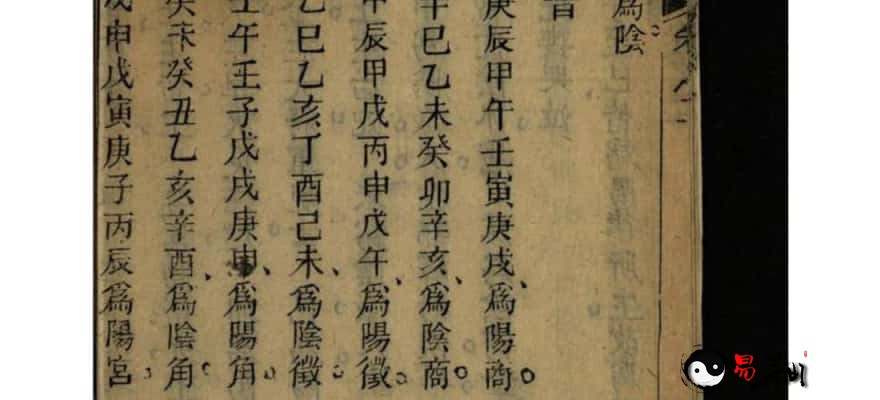 爲陰。
庚辰甲午壬寅庚戌、爲陽商。
辛巳乙未癸卯辛亥、爲陰商。
甲辰甲戌丙申戊午、爲陽徵。
乙巳乙亥丁酉己未、爲陰徵。
壬午壬子戊戌庚申、爲陽角。
癸未癸丑乙亥辛酉、爲陰角。
戊申戊寅庚子丙辰爲陽宮、
易